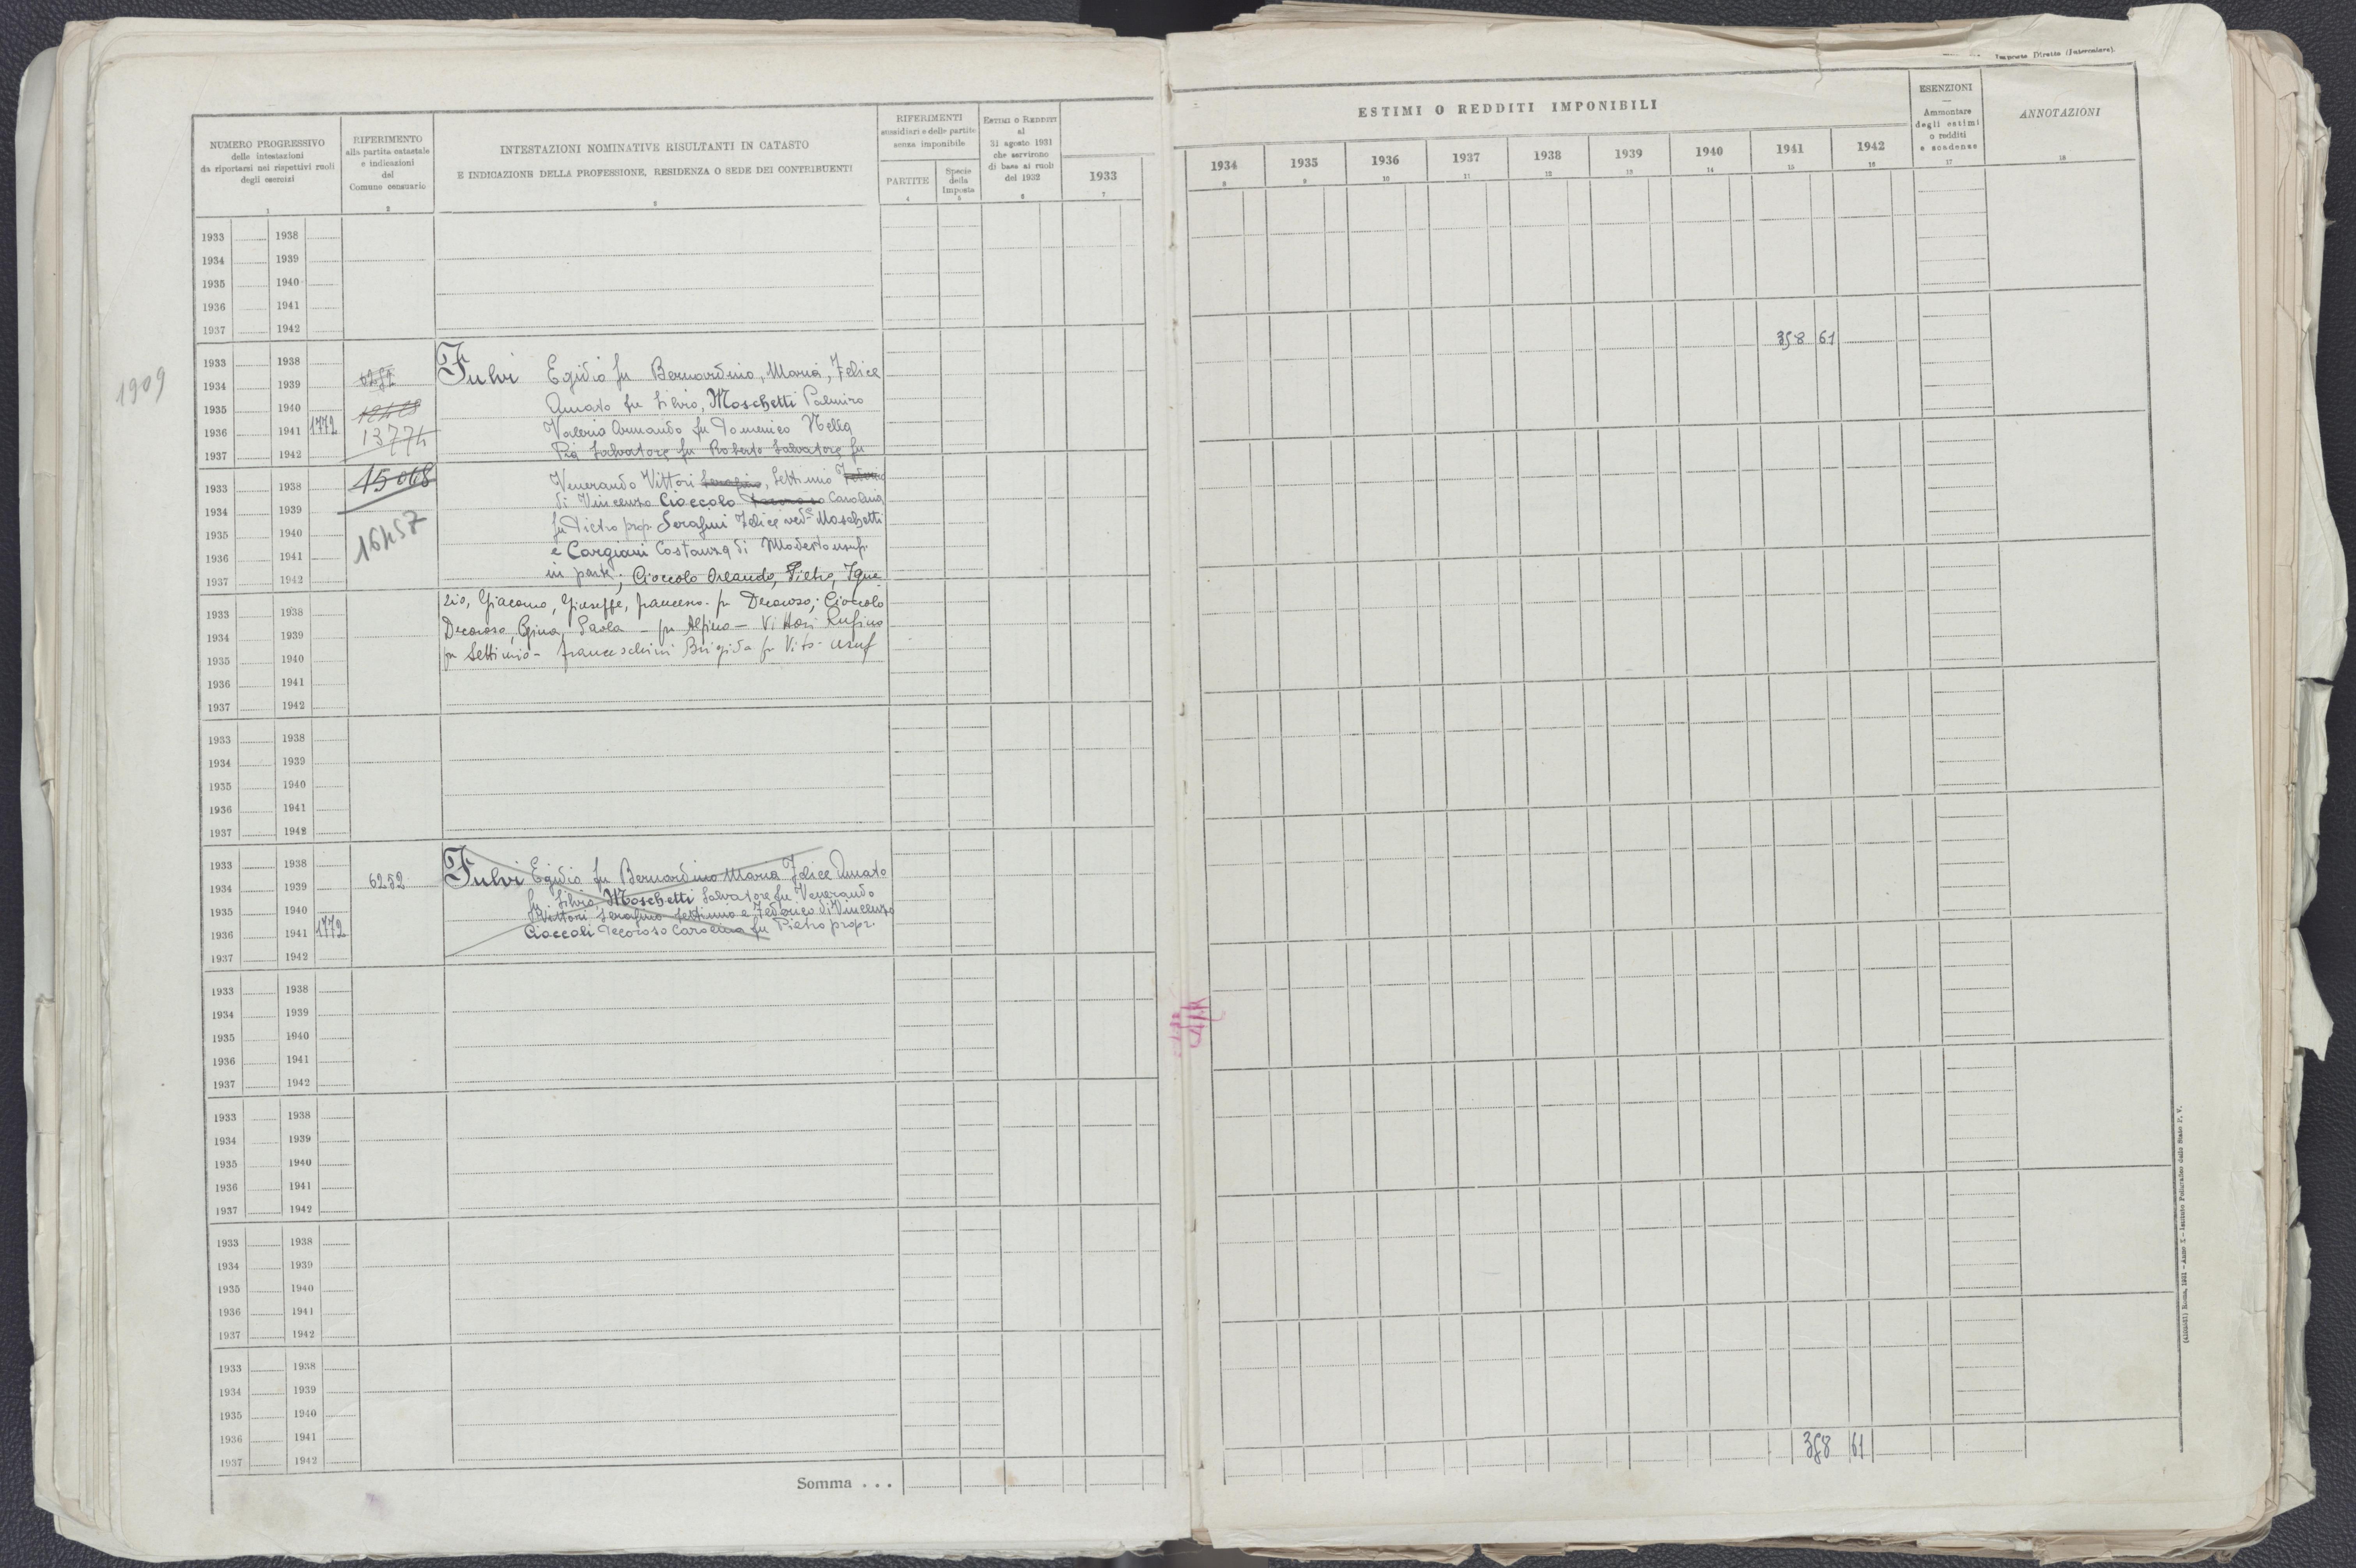 Imposte Dirette (Intercalare).
NUMERO PROGRESSIVO
delle intestazioni
da riportarsi nei rispettivi ruoli
degli esercizi
1
RIFERIMENTO
alla partita catastale
e indicazioni
del
Comune censuario
2
INTESTAZIONI NOMINATIVE RISULTANTI IN CATASTO
E INDICAZIONE DELLA PROFESSIONE, RESIDENZA O SEDE DEI CONTRIBUENTI
3
RIFERIMENTI
sussidiari e delle partite
senza imponibile
PARTITE
4
Specie
della
Imposta
5
ESTIMI O REDDITI
al
31 agosto 1931
che servirono
di base ai ruoli
del 1932
6
1933
7
ESTIMI O REDDITI IMPONIBILI
1934 1935 1936 1937 1938 1939 1940 1941 1942
8 9 10 11 12 13 14 15 16
ESENZIONI
Ammontare
degli estimi
o redditi
e scadenze
17
ANNOTAZIONI
18
1933 1938
1934 1939
1935 1940
1936 1941
1937 1942
1909
1933 1938
1934 1939
1935 1940
1936 1941 1772
1937 1942
6252
13774
Fulvi Egidio fu Bernardino, Maria, Felice
Amato fu Silvio, Moschetti Palmiro
Valeria Armando fu Domenico Nella
Pia Salvatore fu Roberto Salvatore fu
358 61
1933 1938
1934 1939
1935 1940
1936 1941
1937 1942
15068
16457
Venerando Vittori Serafino, Settimio
di Vincenzo Cioccolo Decoroso Carolina
fu Pietro prop. Serafini Felice ved. Moschetti
e Cargiani Costanza di Modesto usuf.
in parte; Cioccolo Orlando, Pietro, Igna
1933 1938
1934 1939
1935 1940
1936 1941
1937 1942
zio, Giacomo, Giuseppe, Francesco fu Decoroso; Cioccolo
Decoroso, Gina, Paola - fu Alpino - Vittori Rufino
fu Settimio - Franceschini Brigida fu Vito usuf
1933 1938
1934 1939
1935 1940
1936 1941
1937 1942
1933 1938
1934 1939
1935 1940
1936 1941 1772
1937 1942
6252
Fulvi Egidio fu Bernardino Maria Felice Amato
fu Silvio, Moschetti Salvatore fu Venerando
Vittori Serafino Settimio e Federico di Vincenzo
Cioccoli Decoroso Carolina fu Pietro propr.
1933 1938
1934 1939
1935 1940
1936 1941
1937 1942
1933 1938
1934 1939
1935 1940
1936 1941
1937 1942
1933 1938
1934 1939
1935 1940
1936 1941
1937 1942
1933 1938
1934 1939
1935 1940
1936 1941
1937 1942
Somma . . .
358 61
Roma, 1931 - Anno X - Istituto Poligrafico dello Stato P. V.